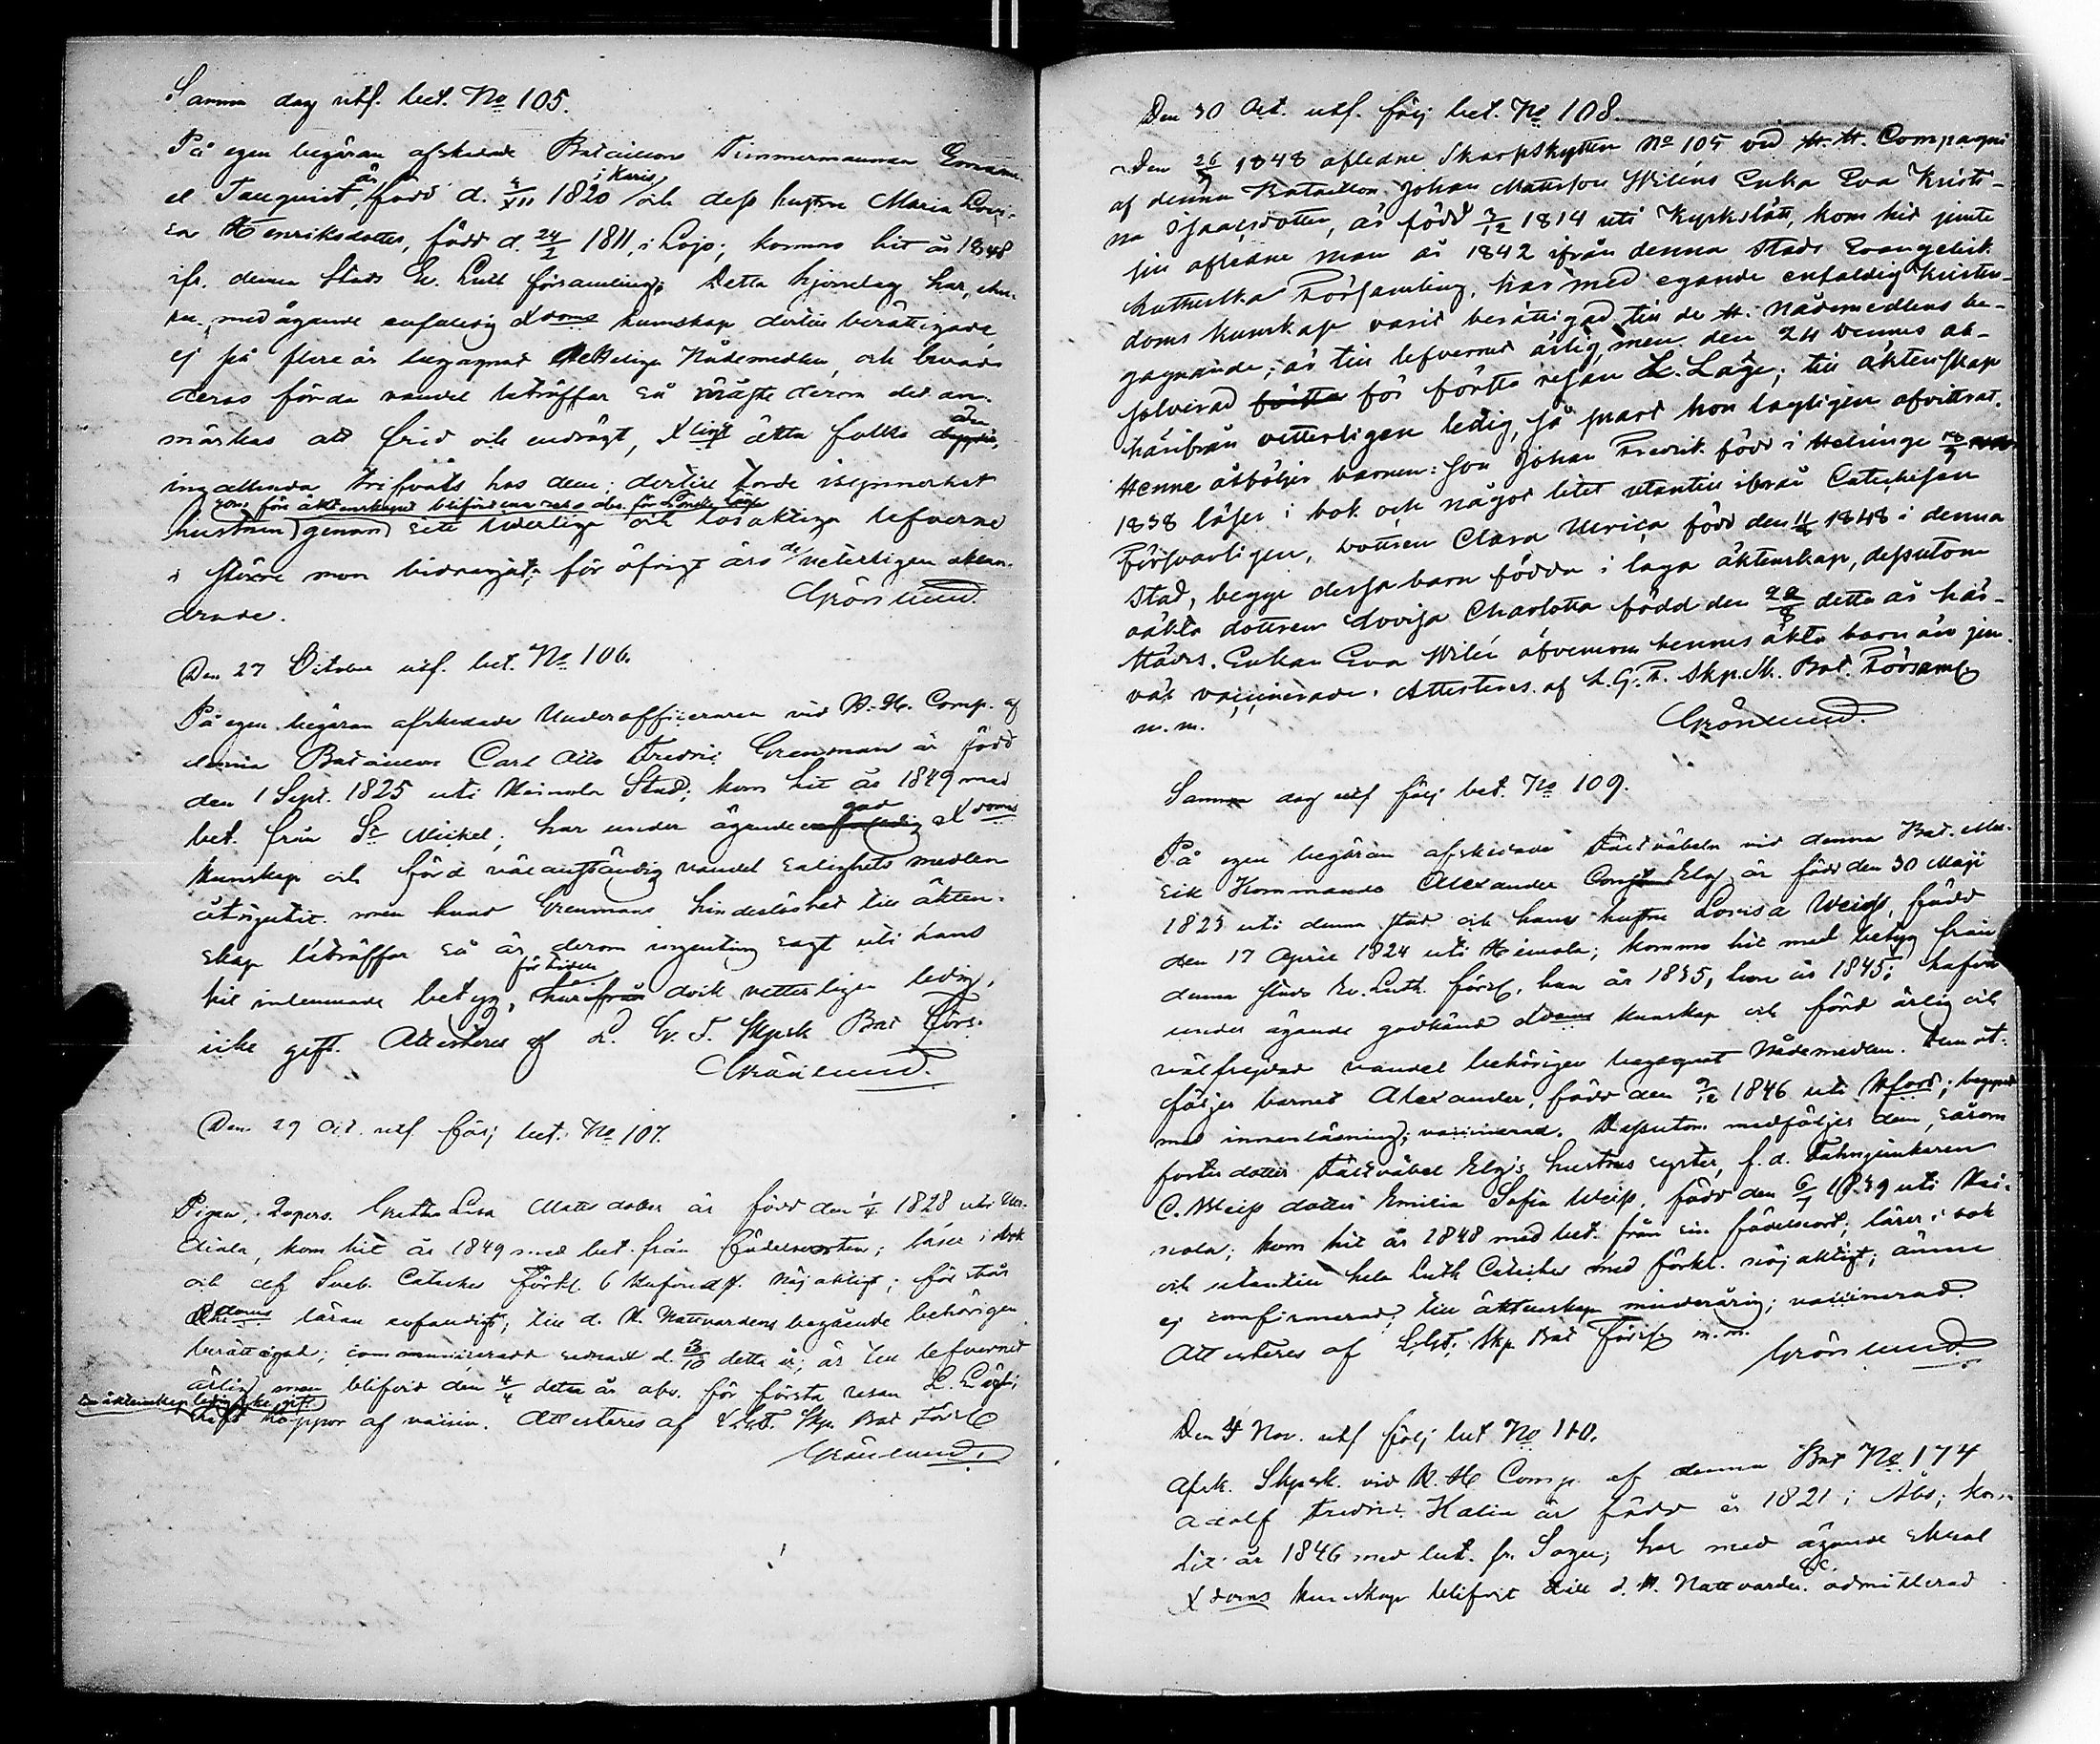 Samma dag utf. bet. No 105.
På egen begäran afskedade Bataillons Timmermannen Emanu-
el Tanquist, är född d. 4/XII 1820 i Karis och dess hustru Maria Lovi-
sa Henriksdotter, född d. 24/2 1811, i Lojo; komne hit år 1848
ifr. denna Stads Ev. Luth församling; Detta hjonelag har, ehu-
ru, med ägande enfaldig Xdoms kunskap dertill berättigade
ej på flere år begagnat Nådemedlen, och hvad
deras förda vandel beträffar så måste derom det an-
märkas att frid och endrägt, Xligt äkta folks
ingalunda trifvats hos dem; dertill torde isynnerhet
som före äktenskapet blifvit abs. för Lönska Läge
hustrun genom sitt liderliga och lösaktiga lefverne
i större mon bidragit; för öfrigt äro de veterligen oklan-
drade. Grönlund.
Den 27 Octobr utf. bet. No 106.
På egen begäran afskedade Underofficeraren vid N. H. Comp. af
denna Bataillon Carl Otto Fredric Grenman är född
den 1 Sept. 1825 uti Heinola Stad; kom hit år 1849 med
bet. från St Michel; har under ägande enfaldig god Xdoms
kunskap och förd välanständig vandel salighets medlen
åtnjutit. men hvad Grenmans hinderlöshet till äkten-
skap beträffar så är derom ingenting sagt uti hans
hit inlemnade betyg, härifrån för tiden dock vetterligen ledig,
icke gift. Attesteres af L. G. T. Skpsk Bat Förs.
Grönlund.
Den 29 Oct. utf följ bet. No 107.
Pigan, Inpers. Gretha Lisa Mattsdotter är född den 1/4 1828 uti
, kom hit år 1849 med bet. från födelseorten; läser i bok
och af Sveb. Cateches Förkl. 6 Hufvudst. nöjaktigt; förstår
Xdoms läran enfaldigt; till d. H. Nattvardens begående behörigen
berättigad; communicerade senast d. 23/10 detta år; är till lefvernet
ärlig men blifvit den 4/4 detta år abs. för första resan L. Läge;
till äktenskap ledig icke gift
haft koppor af vaccin. Attesteres af LGT. Skp Bat Förs
Grönlund.
Den 30 Oct. utf. följ bet. No 108.
Den 26/7 1848 aflidne Skarpskytten No 105 vid H. H. Compagni
af denna Bataillon Johan Mattsson Wiléns Enka Eva Kristi-
na Isaacsdotter, är född 3/12 1814 uti Kyrkslätt, kom hid jemte
sin aflidne man år 1842 ifrån denna Stads Evangelisk
Lutherska Församling, har med egande enfaldig kristen-
doms kunskap varit berättigad till de H. Nådemedlens be-
gagnande; är till lefvernet ärlig, men den 24 dennes ab-
solverad för första resan L. Läge; till äktenskap
härifrån vetterligen ledig, så snart hon lagligen afvittrat.
Henne åtföljer barnen: Son Johan Fredrik född i Helsinge 18/7
1838 läser i bok och något litet utantill ifrån Catechesen
Försvarligen, dottren Clara Ulrica född den 11/8 1848 i denna
stad, begge dessa barn födda i laga äktenskap, dessutom
oäkta dottren Lovisa Charlotta född den 22/8 detta år här-
städes. Enkan Eva Wilén äfvensom hennes äkta barn äro jem-
väl vaccinerade. Attesteres af L.G.T. Skp.sk. Bat. Församl
m.m. Grönlund.
Samma dag utf följ bet. No 109.
På egen begäran afskedade Fältväbeln vid denna Bat. Mu-
sik Kommando Alexander Const Elg är född den 30 Maji
1825 uti denna stad och hans hustru Lovisa Weiss, född
den 17 April 1824 uti Heinola; komne hit med betyg från
denna stads Ev. Luth. förs, han år 1835, hon år 1845; hafva
under ägande godkänd Xdoms kunskap och förd ärlig och
välfrejdad vandel behörigen begagnat Nådemedlen. Dem åt-
följer barnet Alexander, född den 9/12 1846 uti Hfors; begynt
med innanläsning; vaccinerad. Dessutom medföljer dem, såsom
fosterdotter Fältväbel Elg's hustrus syster, f. d. Fahnjunkaren
C. Weiss dotter Emilia Sofia Weiss, född den 6/7 1839 uti Hei-
nola; kom hit år 1848 med bet. från sin födelseort, läser i bok
och utantill hela Luth Cateches med förkl. nöjaktigt; ännu
ej confirmerad; till äktenskap minderårig; vaccinerad.
Attesteres af LGT. Skp Bat Förs m. m.
Grönlund.
Den 4 Nov. utf följ bet No 110.
Afsk. Skpsk. vid N. H Comp. af denna Bat No 174
Adolf Fredric Halin är född år 1821 i Åbo; kom
hit år 1846 med bet. fr. Sagu; har med ägande
Xdoms kunskap blifvit till d. H. Nattvarden &c. admitterad